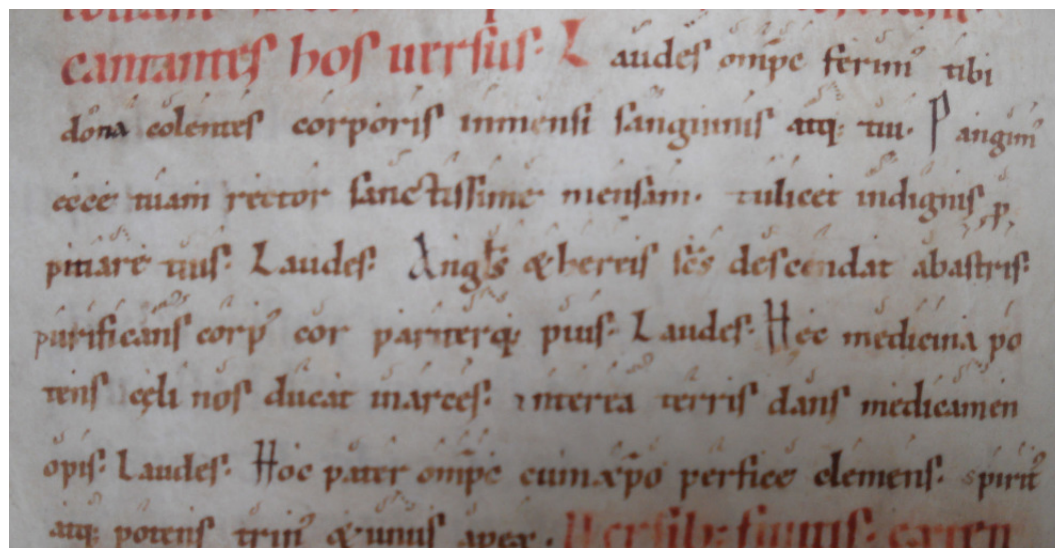 cantantes hos uersus. Laudes omps ferim tibi
dona colentes corporis inmensi sanguinis atq: tui. Pangim
ecce tuam rector sanctissime mensam. tu licet indignis p
pitiare tuis. Laudes. Angls & hereis scs descendat ab astris.
purificans corp cor pariterq; pius. Laudes. Hec medicina po
tens celi nos ducat in arces. interea terris dans medicamen
opis. Laudes. Hoc pater omps cum xpo perfice clemens. spirit
atq: potens trin & unus apex.